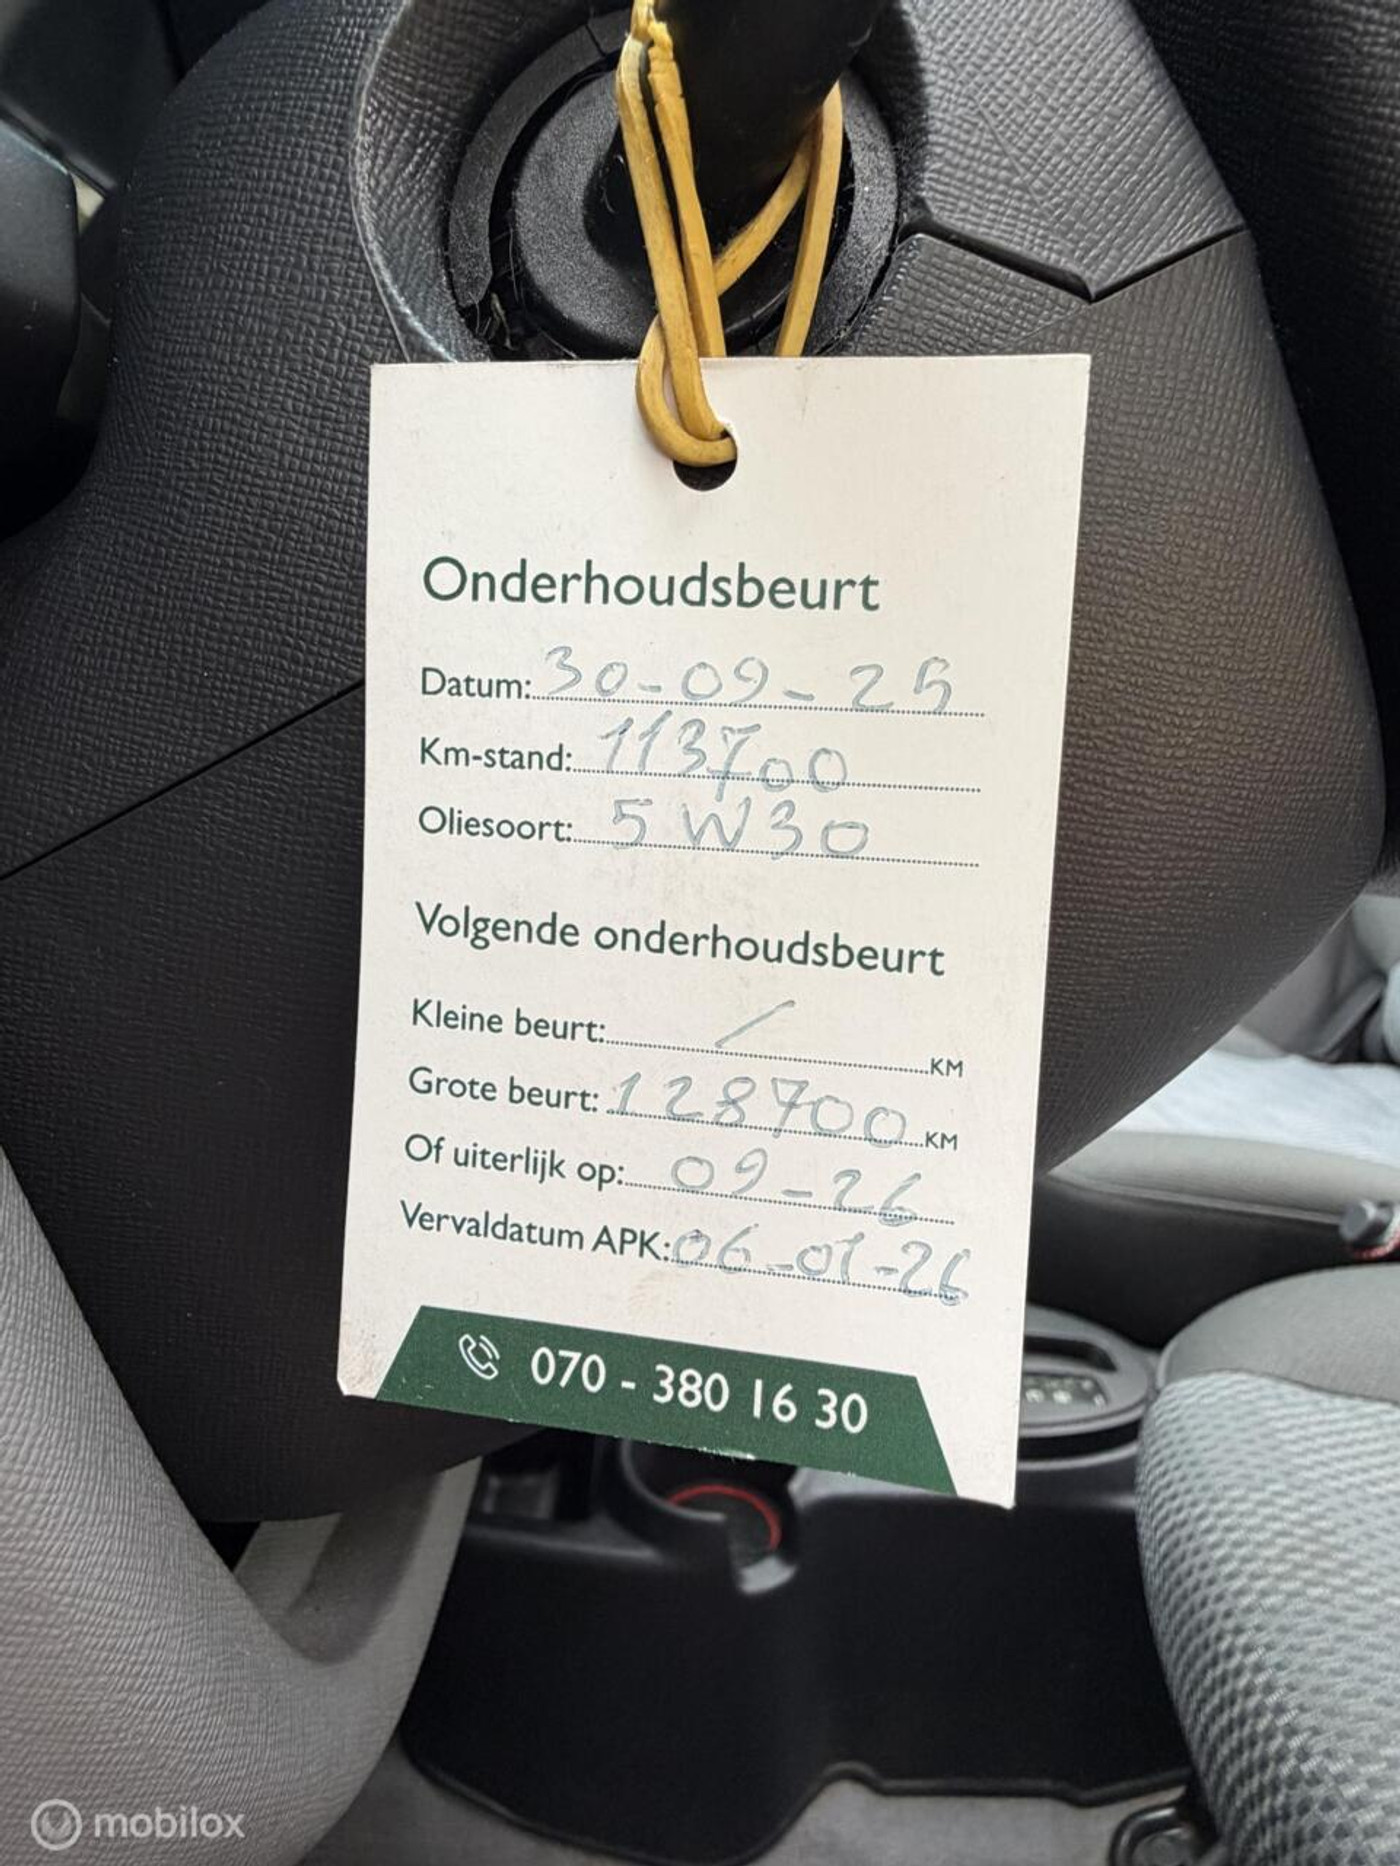 Onderhoudsbeurt
Datum: 30-09-25
Km-stand: 113700
Oliesoort: 5W30
Volgende onderhoudsbeurt
Kleine beurt: / KM
Grote beurt: 128700 KM
Of uiterlijk op: 09-26
Vervaldatum APK: 06-01-26
070 - 380 16 30
mobilox